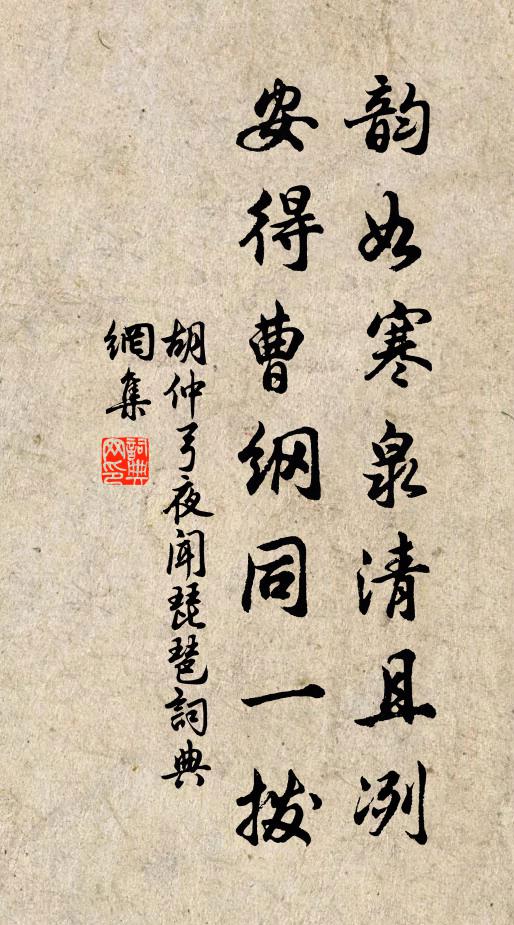 韵如寒泉清且冽
安得曹纲同一拨
胡仲弓夜闻琵琶詞典
網集
詞典
网印